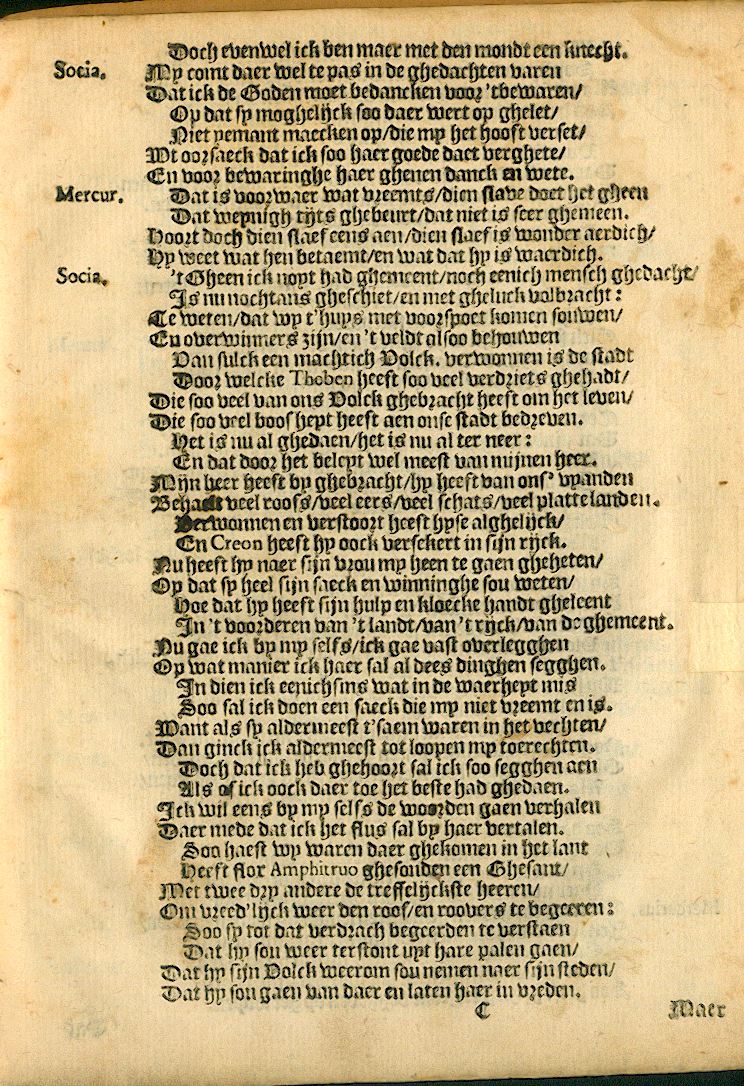 Doch evenwel ick ben maer met den mondt een knecht.
Socia. My comt daer wel te pas in de ghedachten varen
Dat ick de Goden moet bedancken voor 'tbewaren/
Op dat sy moghelijck soo daer wert op ghelet/
Niet yemant maecken op/die my het hooft verset/
Wt oorsaeck dat ick soo haer goede daet verghete/
En voor bewaringhe haer ghenen danck en wete.
Mercur. Dat is voorwaer wat vreemts/dien slave doet het gheen
Dat weynigh tijts ghebeurt/dat niet is seer ghemeen.
Hoort doch dien slaef eens aen/dien slaef is wonder aerdich/
Hy weet wat hen betaemt/en wat dat hy is waerdich.
Socia. 't Gheen ick noyt had ghemeent/noch eenich mensch ghedacht/
Is nu nochtans gheschiet/en met gheluck volbracht:
Te weten/dat wy t'huys met voorspoet komen souwen/
En overwinners zijn/en 't veldt alsoo behouwen
Van sulck een machtich Volck. verwonnen is de stadt
Door welcke Theben heeft soo veel verdriets ghehadt/
Die soo veel van ons Volck ghebracht heeft om het leven/
Die soo veel boosheyt heeft aen onse stadt bedreven.
Het is nu al ghedaen/het is nu al ter neer:
En dat door het beleyt wel meest van mijnen heer.
Mijn heer heeft by ghebracht/hy heeft van ons' vyanden
Behaelt veel roofs/veel eers/veel schats/veel platte landen.
Verwonnen en verstoort heeft hyse alghelijck/
En Creon heeft hy oock versekert in sijn rijck.
Nu heeft hy naer sijn vrou my heen te gaen gheheten/
Op dat sy heel sijn saeck en winninghe sou weten/
Hoe dat hy heeft sijn hulp en kloecke handt gheleent
In 't voorderen van 't landt/van 't rijck/van de ghemeent.
Nu gae ick by my selfs/ick gae vast overlegghen
Op wat manier ick haer sal al dees dinghen segghen.
In dien ick eenichsins wat in de waerheyt mis
Soo sal ick doen een saeck die my niet vreemt en is.
Want als sy aldermeest t'saem waren in het vechten/
Dan ginck ick aldermeest tot loopen my toerechten.
Doch dat ick heb ghehoort sal ick soo segghen aen
Als of ick oock daer toe het beste had ghedaen.
Ick wil eens by my selfs de woorden gaen verhalen
Daer mede dat ick het flus sal by haer vertalen.
Soo haest wy waren daer ghekomen in het lant
Heeft flor Amphitruo ghesonden een Ghesant/
Met twee dry andere de treffelijckste heeren/
Om vreed'lijck weer den roof/en roovers te begeeren:
Soo sy tot dat verdrach begeerden te verstaen
Dat hy sou weer terstont uyt hare palen gaen/
Dat hy sijn Volck weerom sou nemen naer sijn steden/
Dat hy sou gaen van daer en laten haer in vreden.
C Maer